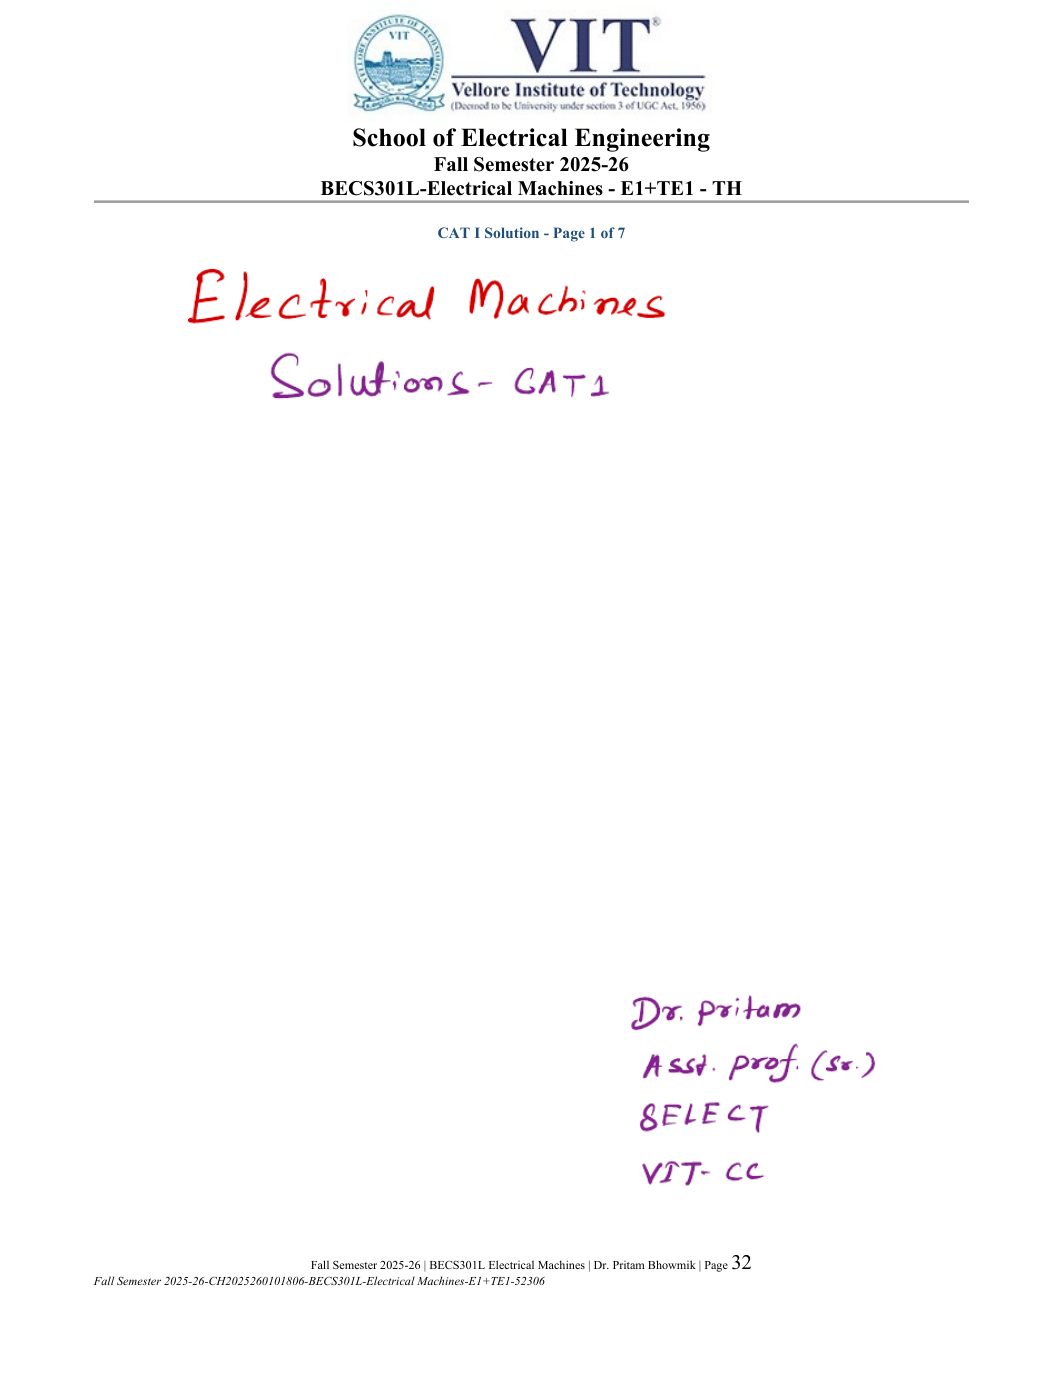 VIT
VIT®
Vellore Institute of Technology
(Deemed to be University under section 3 of UGC Act, 1956)
School of Electrical Engineering
Fall Semester 2025-26
BECS301L-Electrical Machines - E1+TE1 - TH
CAT I Solution - Page 1 of 7
Electrical Machines
Solutions - CAT1
Dr. Pritam
Asst. prof. (Sr.)
SELECT
VIT- CC
Fall Semester 2025-26 | BECS301L Electrical Machines | Dr. Pritam Bhowmik | Page 32
Fall Semester 2025-26-CH2025260101806-BECS301L-Electrical Machines-E1+TE1-52306